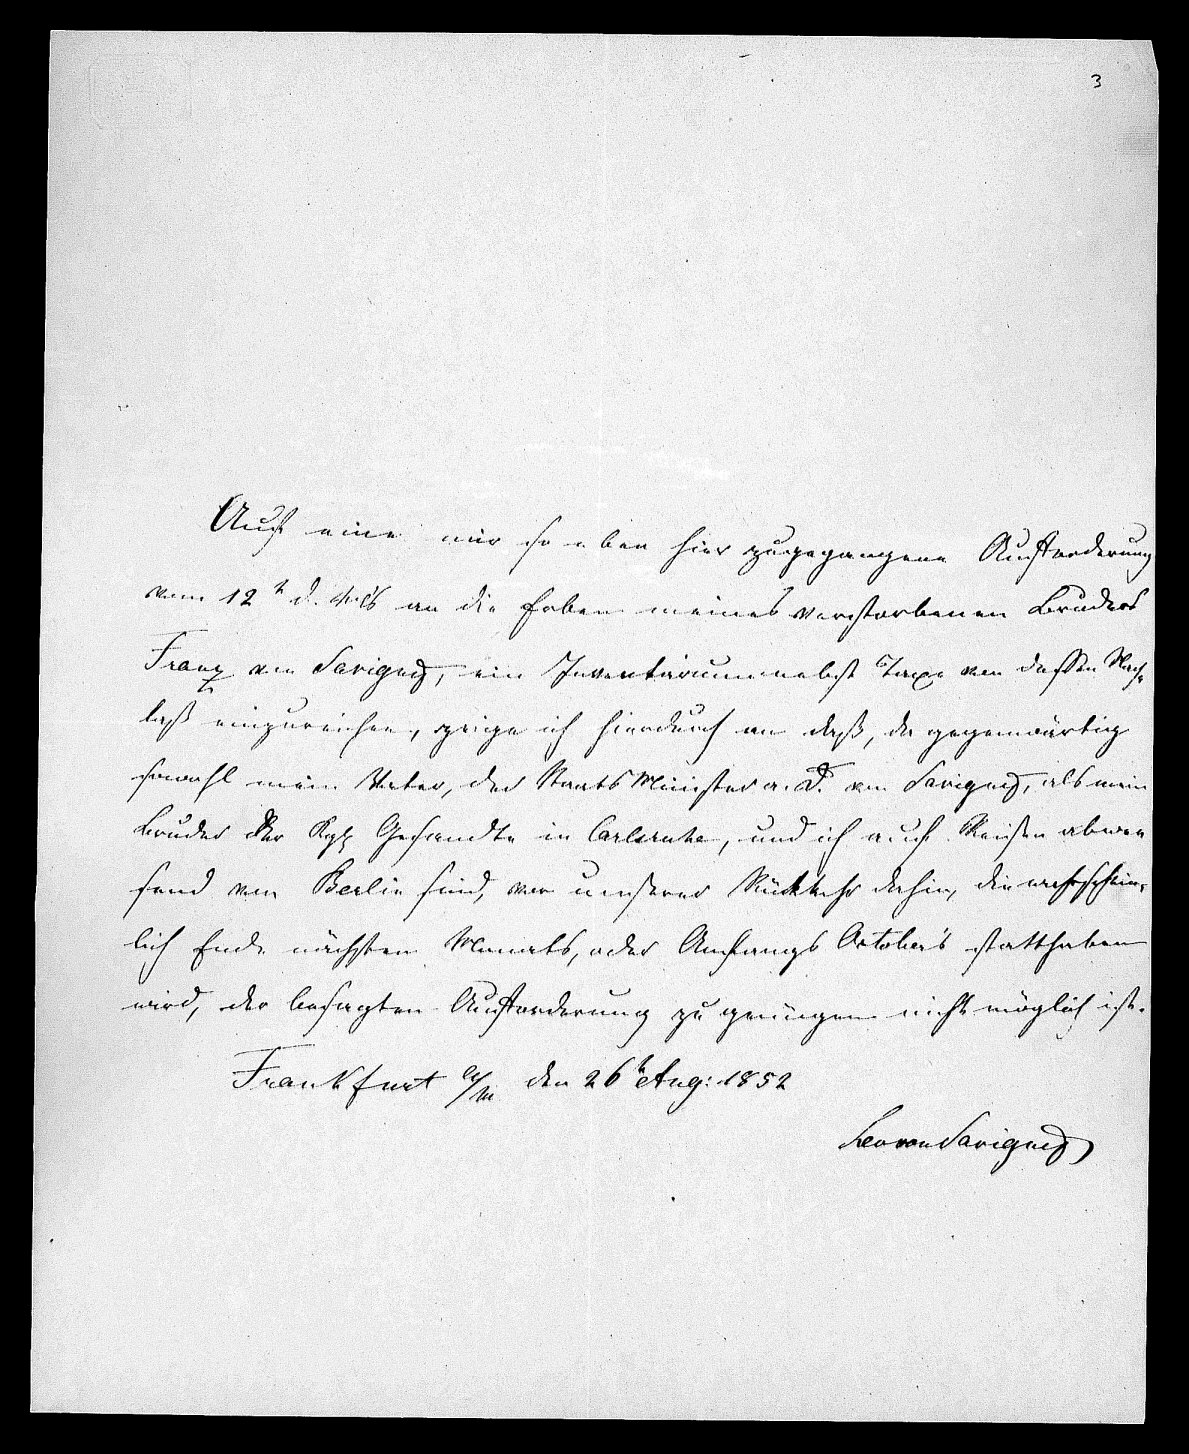 3
Auf eine mir so eben hier zugegangene Aufforderung
vom 12t d. Mts an die Erben meines verstorbenen Bruders
Franz von Savigny, ein Inventarium nebst Taxe von dessen Nach-
laß einzureichen, zeige ich hierdurch an daß, da gegenwärtig
sowohl mein Vater, der Staats Minister a. D. von Savigny, als mein
Bruder der Kgl Gesandte in Carlsruhe, und ich auf Reisen abwe
send von Berlin sind, vor unserer Rückkehr dahin, die wahrschein-
lich Ende nächsten Monats, oder Anfangs October's statthaben
wird, der besagten Aufforderung zu genügen nicht möglich ist.
Frankfurt a/m den 26t Aug: 1852
Leo von Savigny